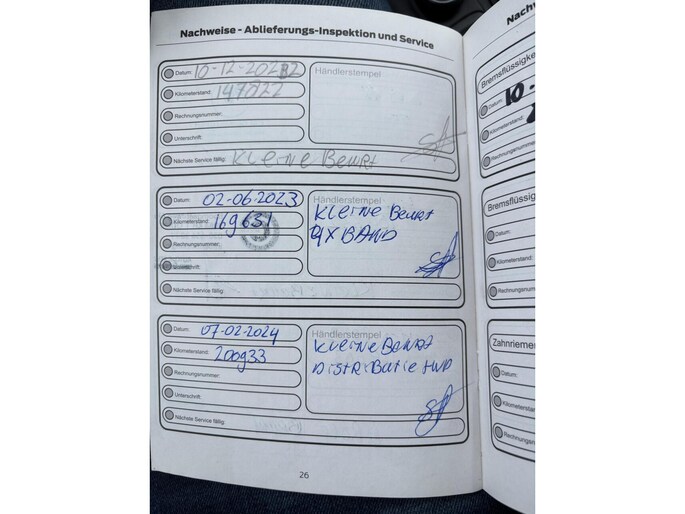 Nachweise - Ablieferungs-Inspektion und Service
Datum: 10-12-2022
Händlerstempel
Kilometerstand: 147822
Rechnungsnummer:
Unterschrift:
Nächste Service fällig: Kleine Beurt
Datum: 02-06-2023
Händlerstempel
Kilometerstand 169631
Kleine Beurt
4X BAND
Rechnungsnummer:
Unterschrift:
Nächste Service fällig:
Datum: 07-02-2024
Händlerstempel
Kilometerstand: 200933
Kleine Beurt
Distributie
Rechnungsnummer:
Unterschrift:
Nächste Service fällig:
26
Nachw
Bremsflüssigke
Datum: 10-
Kilometerstand:
Rechnungsnummer
Bremsflüssig
Datum:
Kilometerstand:
Rechnungsnum
Zahnrieme
Datum:
Kilometerst
Rechnungsn